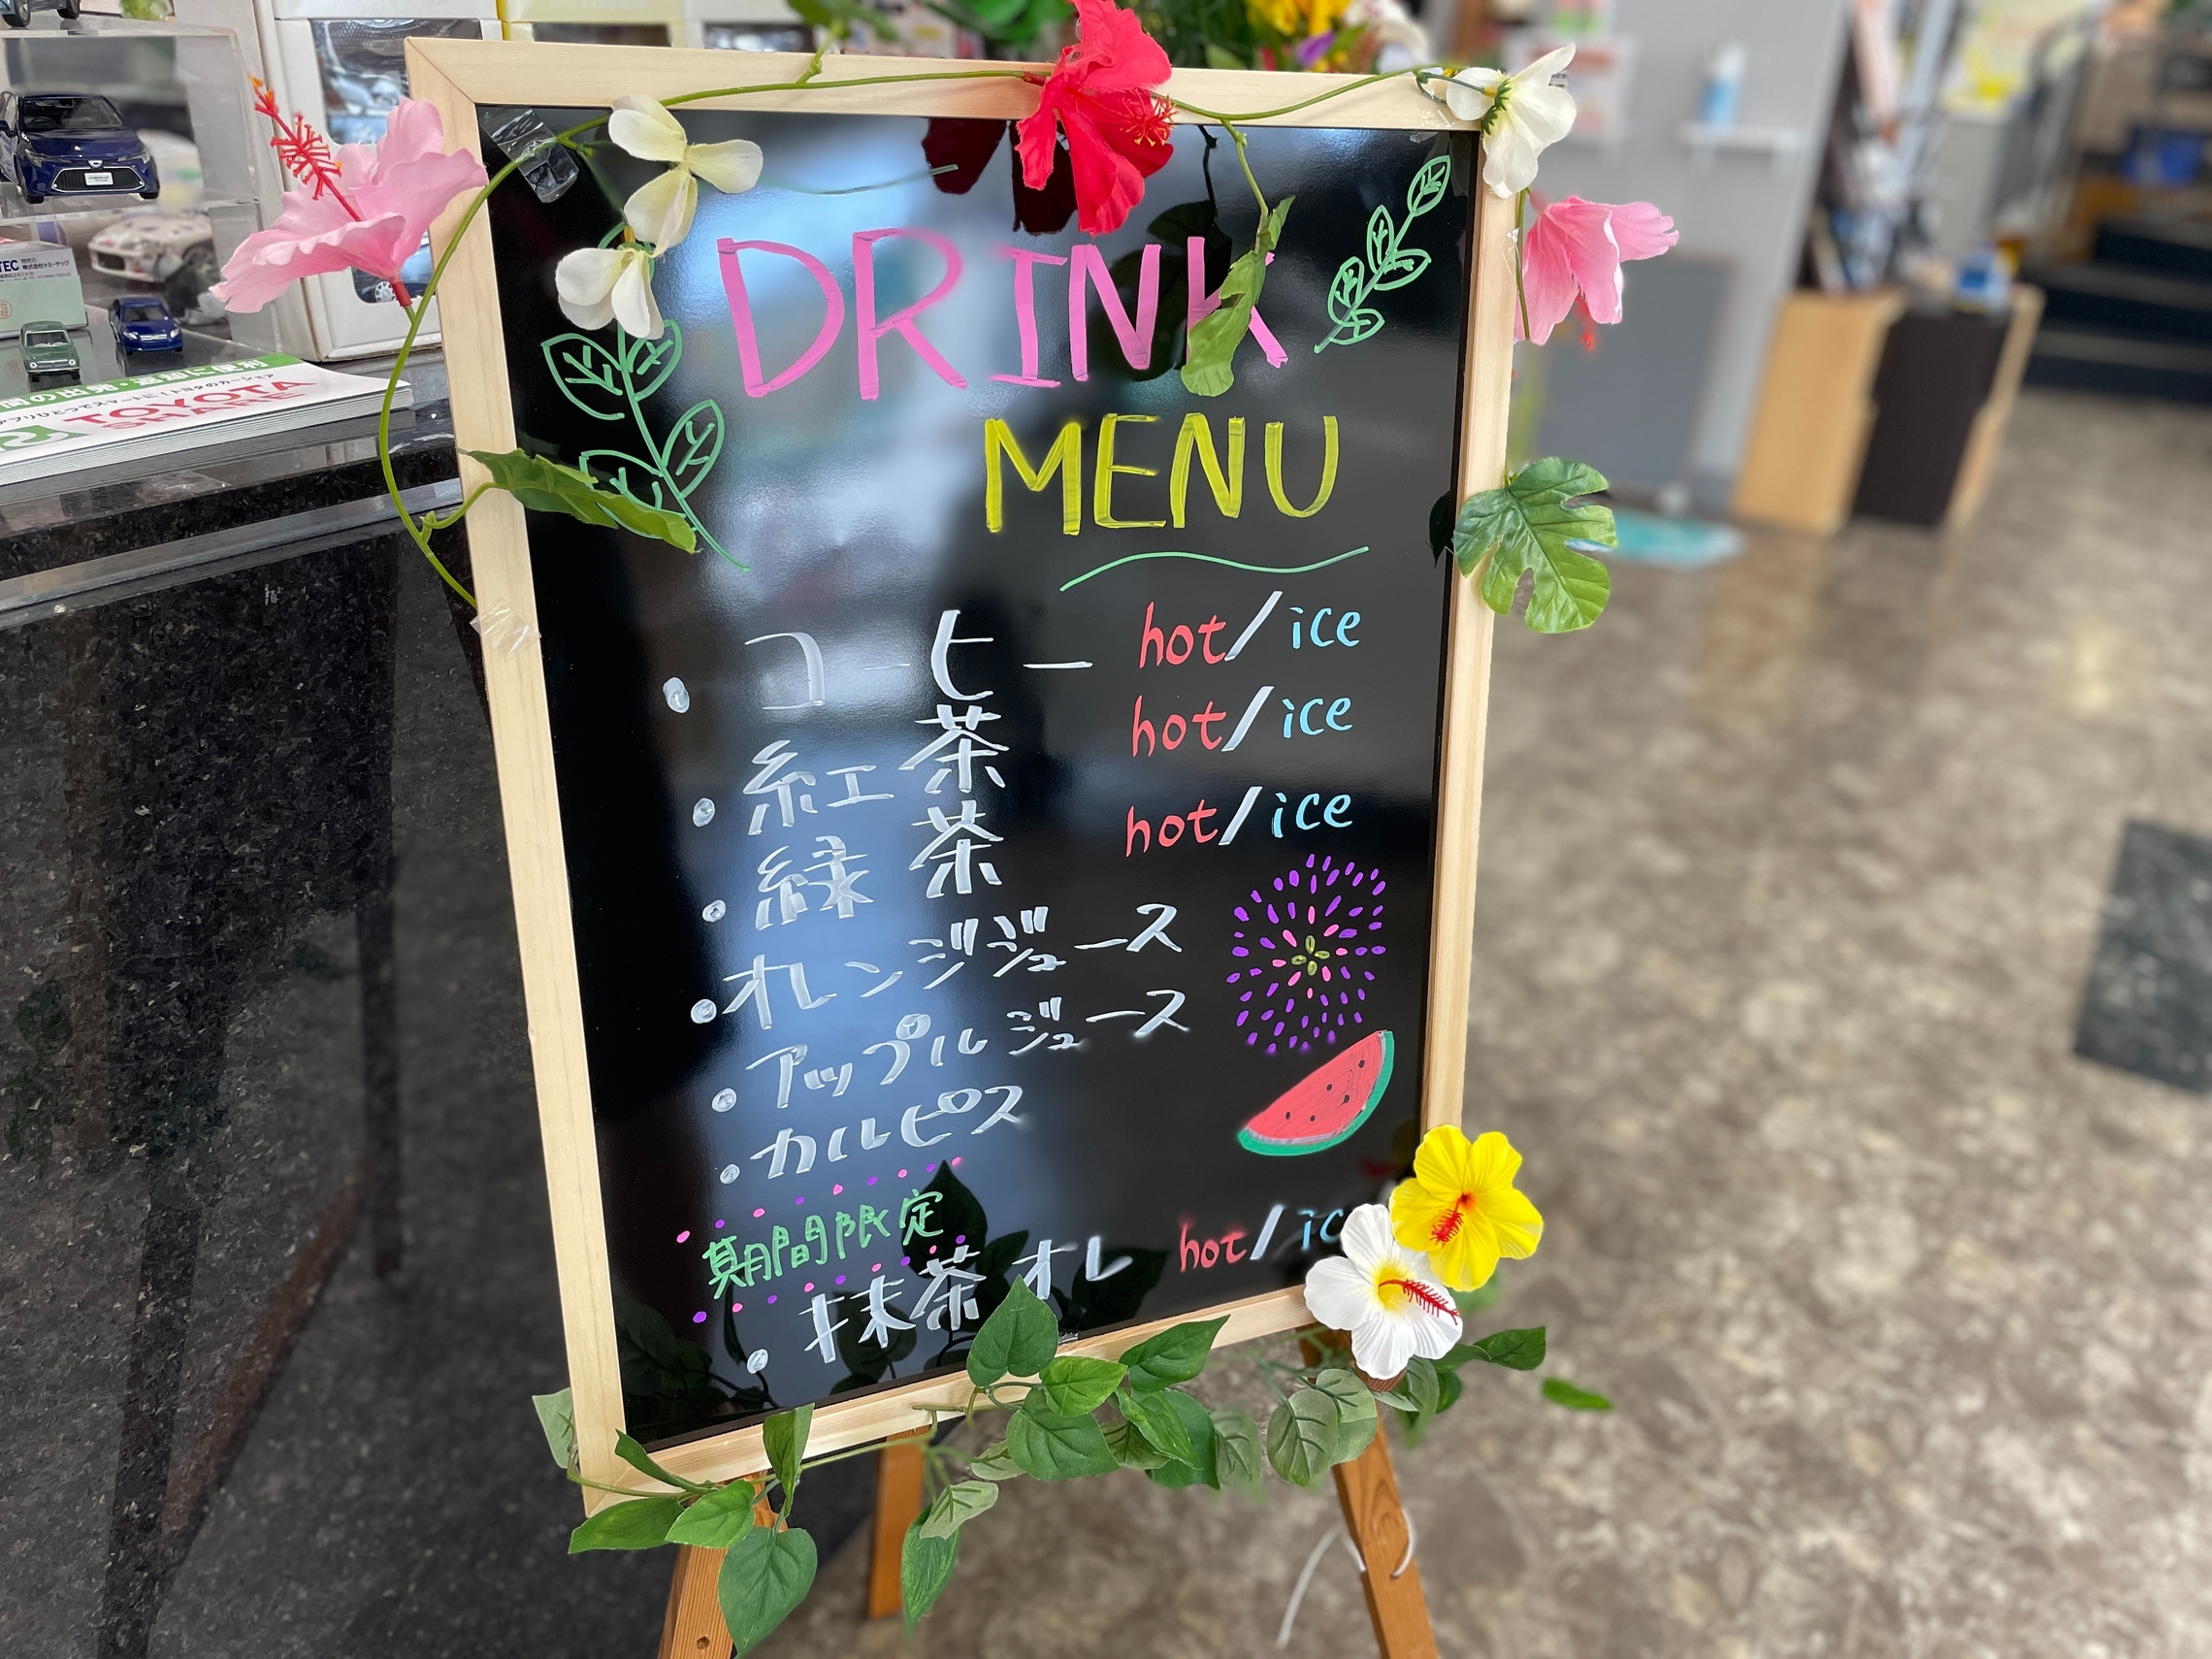 DRINK
MENU
・コーヒー hot/ice
・紅茶 hot/ice
・緑茶 hot/ice
・オレンジジュース
・アップルジュース
・カルピス
期間限定
・抹茶オレ hot/ic
TEC
株式会社トミーテック
TOYOTA
SHARE